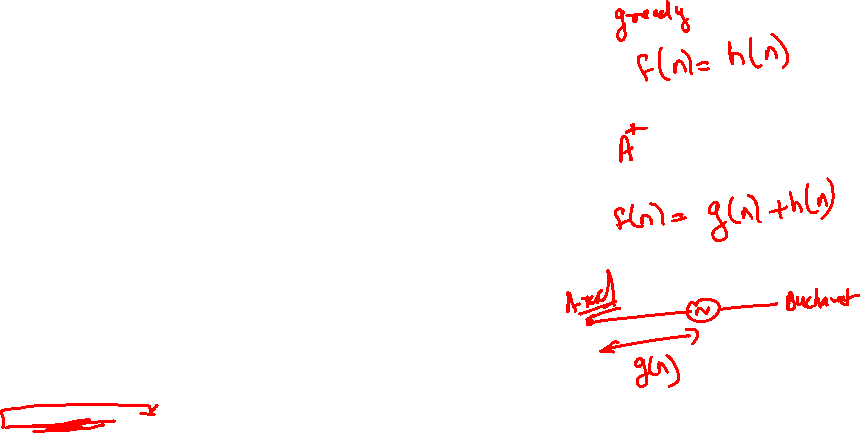 greedy
f(n) = h(n)
A*
f(n) = g(n) + h(n)
Arad n Bucharest
g(n)